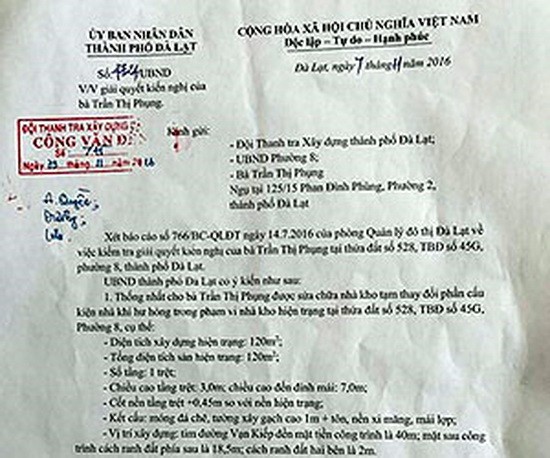 ỦY BAN NHÂN DÂN
THÀNH PHỐ ĐÀ LẠT
CỘNG HÒA XÃ HỘI CHỦ NGHĨA VIỆT NAM
Độc lập – Tự do – Hạnh phúc
Số: /UBND
V/v giải quyết kiến nghị của
bà Trần Thị Phụng.
Đà Lạt, ngày 7 tháng 11 năm 2016
ĐỘI THANH TRA XÂY DỰNG
CÔNG VĂN
Số
Ngày tháng năm
Kính gửi:
- Đội Thanh tra Xây dựng thành phố Đà Lạt;
- UBND Phường 8;
- Bà Trần Thị Phụng
Ngụ tại 125/15 Phan Đình Phùng, Phường 2,
thành phố Đà Lạt
Xét báo cáo số 766/BC-QLĐT ngày 14.7.2016 của phòng Quản lý đô thị Đà Lạt về
việc kiểm tra giải quyết kiến nghị của bà Trần Thị Phụng tại thửa đất số 528, TBĐ số 45G,
phường 8, thành phố Đà Lạt.
UBND thành phố Đà Lạt có ý kiến như sau:
1. Thống nhất cho bà Trần Thị Phụng được sửa chữa nhà kho tạm thay đổi phần cấu
kiện nhà khi hư hỏng trong phạm vi nhà kho hiện trạng tại thửa đất số 528, TBĐ số 45G,
Phường 8, cụ thể:
- Diện tích xây dựng hiện trạng: 120m²;
- Tổng diện tích sàn hiện trạng: 120m²;
- Số tầng: 1 trệt;
- Chiều cao tầng trệt: 3,0m; chiều cao đến đỉnh mái: 7,0m;
- Cốt nền tầng trệt +0,45m so với nền hiện trạng;
- Kết cấu: móng đá chẻ, tường xây gạch cao 1m + tôn, nền xi măng, mái lợp;
- Vị trí xây dựng: tim đường Vạn Kiếp đến mặt tiền công trình là 40m; mặt sau công
trình cách ranh đất phía sau là 18,5m; cách ranh đất hai bên là 2m.